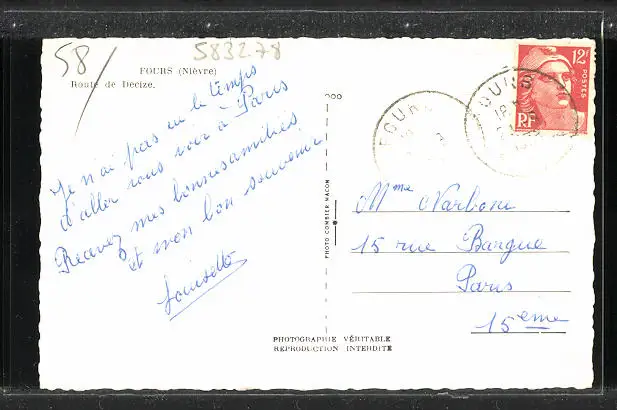 58/
583278
FOURS (Nièvre)
Route de Decize.
Je n'ai pas eu le temps
d'aller vous voir à Paris
Recevez mes bonnes amitiés
et mon bon souvenir
Louisette
PHOTO COMBIER MACON
PHOTOGRAPHIE VÉRITABLE
REPRODUCTION INTERDITE
12F
POSTES
RF
FOURS
FOURS
Mme Narbone
15 rue Bargue
Paris
15eme